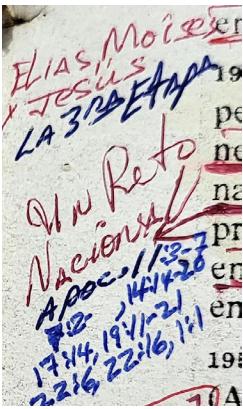 ELIAS, MOISES
Y JESÚS
LA 3RA ETAPA
UN Reto
NACIONAL
APOC. 11:3-7
7:2- , 14:14-20
17:14, 19:11-21
22:6, 22:16, 1:1
en
19
pe
ne
na
pr
en
en
195
(A